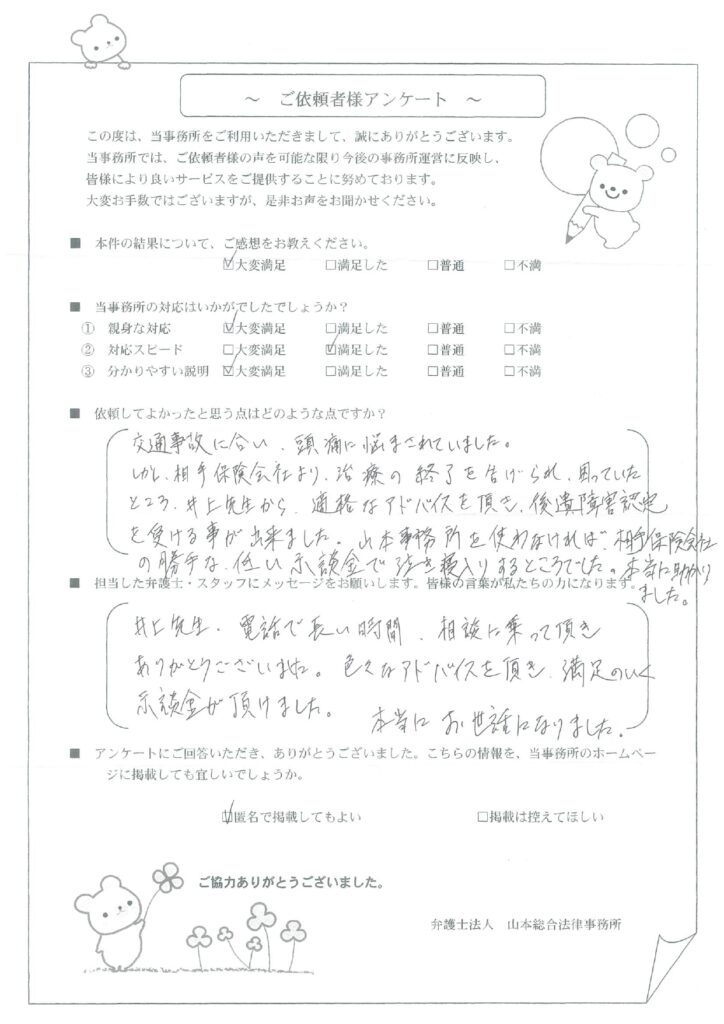 ～ ご依頼者様アンケート ～
この度は、当事務所をご利用いただきまして、誠にありがとうございます。
当事務所では、ご依頼者様の声を可能な限り今後の事務所運営に反映し、
皆様により良いサービスをご提供することに努めております。
大変お手数ではございますが、是非お声をお聞かせください。
■ 本件の結果について、ご感想をお教えください。
☑大変満足 □満足した □普通 □不満
■ 当事務所の対応はいかがでしたでしょうか？
① 親身な対応 ☑大変満足 □満足した □普通 □不満
② 対応スピード □大変満足 ☑満足した □普通 □不満
③ 分かりやすい説明 ☑大変満足 □満足した □普通 □不満
■ 依頼してよかったと思う点はどのような点ですか？
交通事故に合い、頭痛に悩まされていました。
しかし、相手保険会社より、治療の終了を告げられ、困っていた
ところ、井上先生から、適格なアドバイスを頂き、後遺障害認定
を受ける事が出来ました。山本事務所を使わなければ、相手保険会社
の勝手な、低い示談金で泣き寝入りするところでした。本当に助かり
ました。
■ 担当した弁護士・スタッフにメッセージをお願いします。皆様の言葉が私たちの力になります。
井上先生、電話で長い時間、相談に乗って頂き
ありがとうございました。色々なアドバイスを頂き、満足のいく
示談金が頂けました。 本当にお世話になりました。
■ アンケートにご回答いただき、ありがとうございました。こちらの情報を、当事務所のホームペー
ジに掲載しても宜しいでしょうか。
☑匿名で掲載してもよい □掲載は控えてほしい
ご協力ありがとうございました。
弁護士法人 山本総合法律事務所